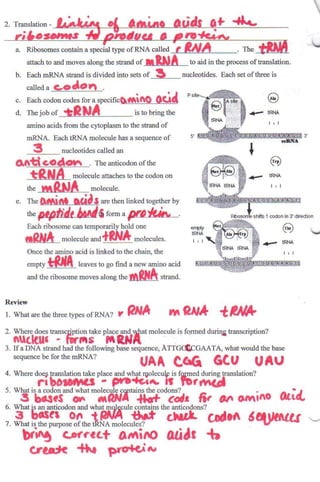 2. Translation - linking of amino acids at the
ribosomes to produce a protein.
a. Ribosomes contain a special type of RNA called r RNA. The tRNA
attach to and moves along the strand of mRNA to aid in the process of translation.
b. Each mRNA strand is divided into sets of 3 nucleotides. Each set of three is
called a codon.
c. Each codon codes for a specific amino acid
d. The job of tRNA is to bring the
amino acids from the cytoplasm to the strand of
mRNA. Each tRNA molecule has a sequence of
3 nucleotides called an
anticodon. The anticodon of the
tRNA molecule attaches to the codon on
the mRNA molecule.
e. The amino acids are then linked together by
the peptide bonds form a protein.
Each ribosome can temporarily hold one
mRNA molecule and tRNA molecules.
Once the amino acid is linked to the chain, the
empty tRNA leaves to go find a new amino acid
and the ribosome moves along the mRNA strand.
P site
A site
Met
Ala
tRNA
tRNA
5'
3'
mRNA
Met
Ala
Trp
tRNA
tRNA
tRNA
Ribosome shifts 1 codon in 3' direction
empty
tRNA
Met
Ala
Trp
tRNA
tRNA
tRNA
Review
1. What are the three types of RNA? r RNA m RNA tRNA
2. Where does transcription take place and what molecule is formed during transcription?
nucleus - forms mRNA
3. If a DNA strand had the following base sequence, ATTGCCCGAATA, what would the base
sequence be for the mRNA?
UAA CGG GCU UAU
4. Where does translation take place and what molecule is formed during translation?
ribosomes - protein is formed
5. What is a codon and what molecule contains the codons?
3 bases on mRNA that code for an amino acid
6. What is an anticodon and what molecule contains the anticodons?
3 bases on tRNA that check codon sequences
7. What is the purpose of the tRNA molecules?
bring correct amino acids to
create the protein